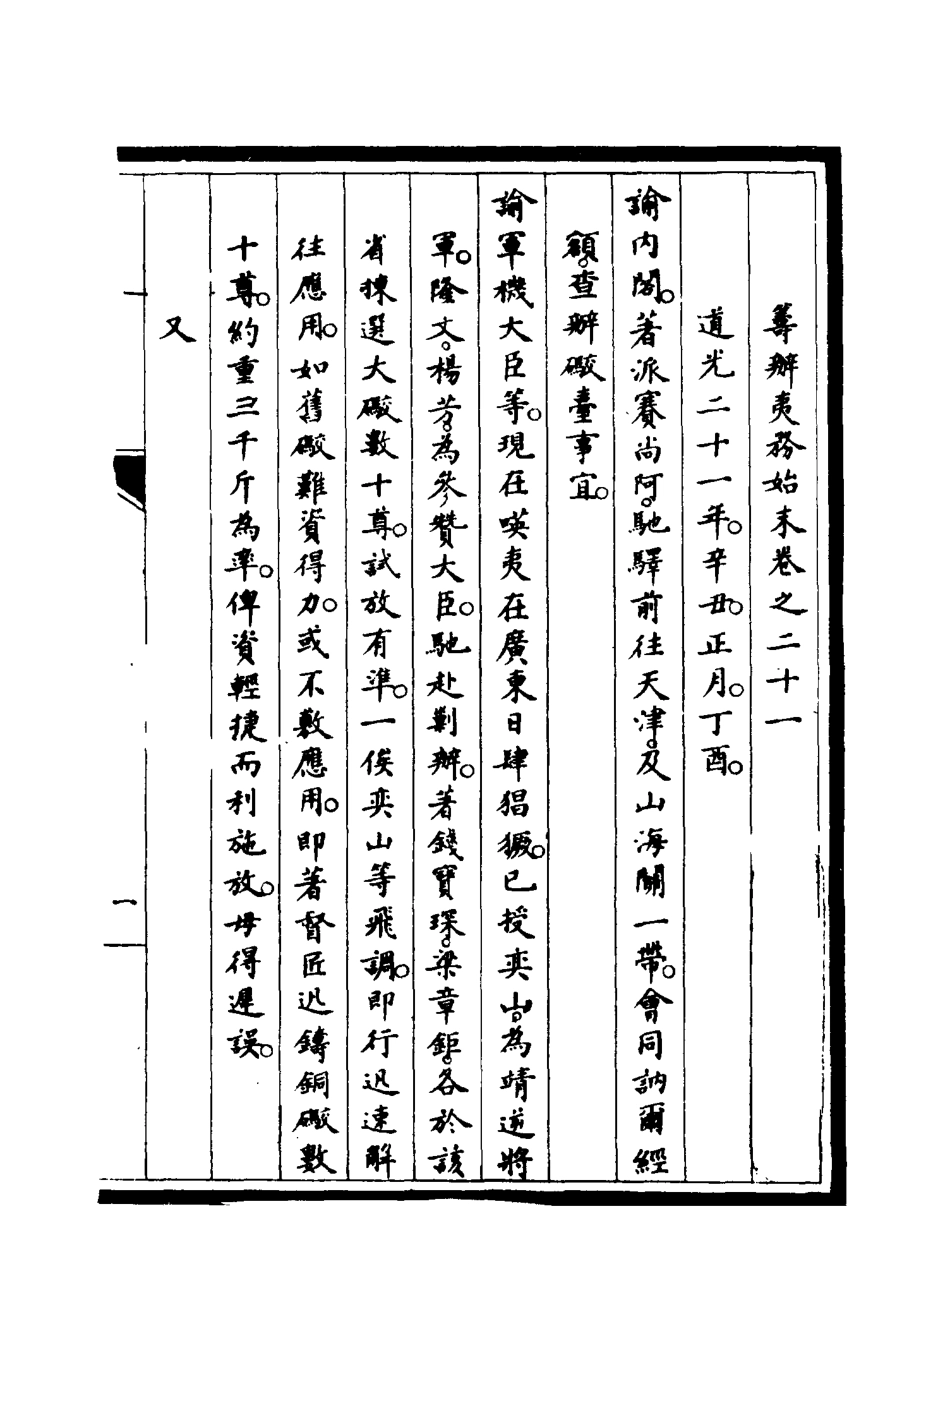 籌辦夷務始末卷之二十一
道光二十一年。辛丑。正月。丁酉。
諭內閣。著派賽尚阿。馳驛前往天津。及山海關一帶。會同訥爾經
額。查辦礮臺事宜。
諭軍機大臣等。現在𠸄夷在廣東日肆猖獗。已授奕山。為靖逆將
軍。隆文。楊芳。為參贊大臣。馳赴剿辦。著錢寶琛。梁章鉅。各於該
省揀選大礮數十尊。試放有準。一俟奕山等飛調。即行迅速解
往應用。如舊礮難資得力。或不敷應用。即著督匠迅鑄銅礮數
十尊。約重三千斤為率。俾資輕捷而利施放。毋得遲誤。
又
一
一